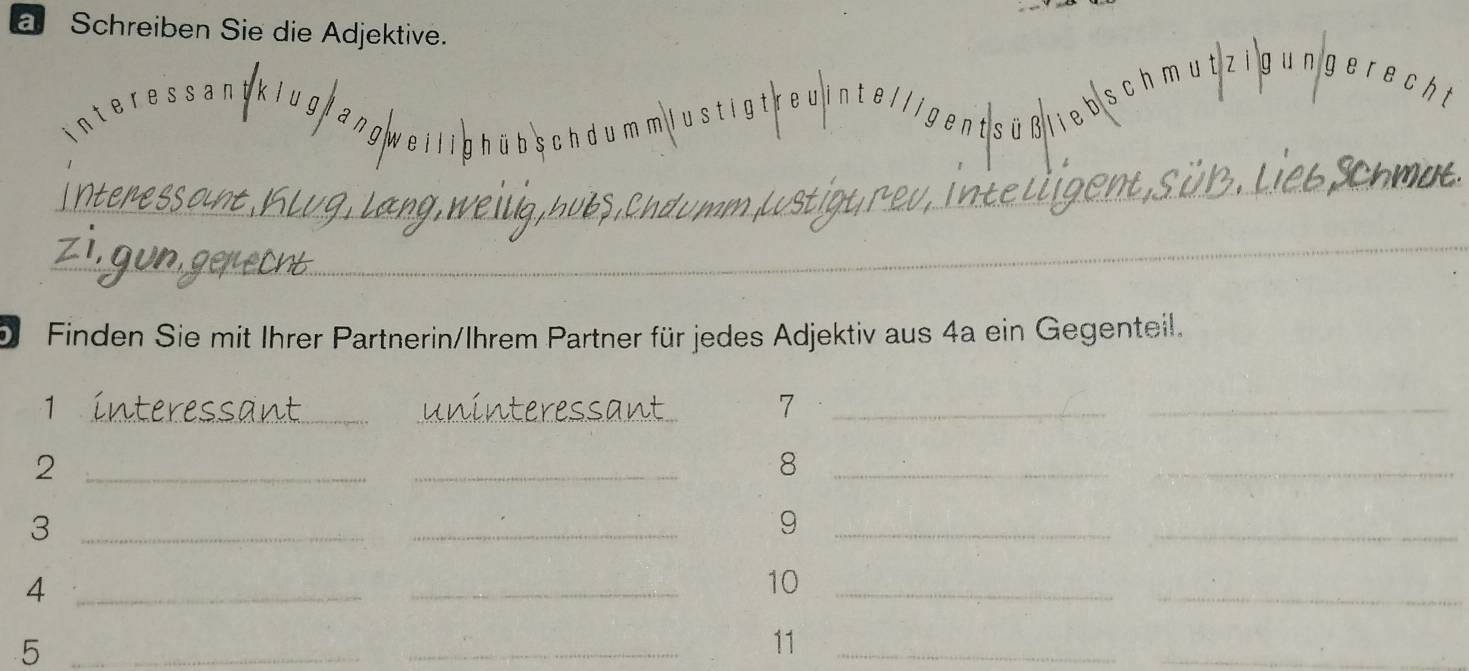 a Schreiben Sie die Adjektive.
interessantkluglangweilighübschdummlustigtreuintelligentsüßliebschmutzigungerecht
interessant, klug, lang, weilig, hubs, chdumm, lustigt, reu, intelligent, süß, lieb, schmut.
zi, gun, gerecht
b Finden Sie mit Ihrer Partnerin/Ihrem Partner für jedes Adjektiv aus 4a ein Gegenteil.
1 interessant uninteressant 7
2 8
3 9
4 10
5 11